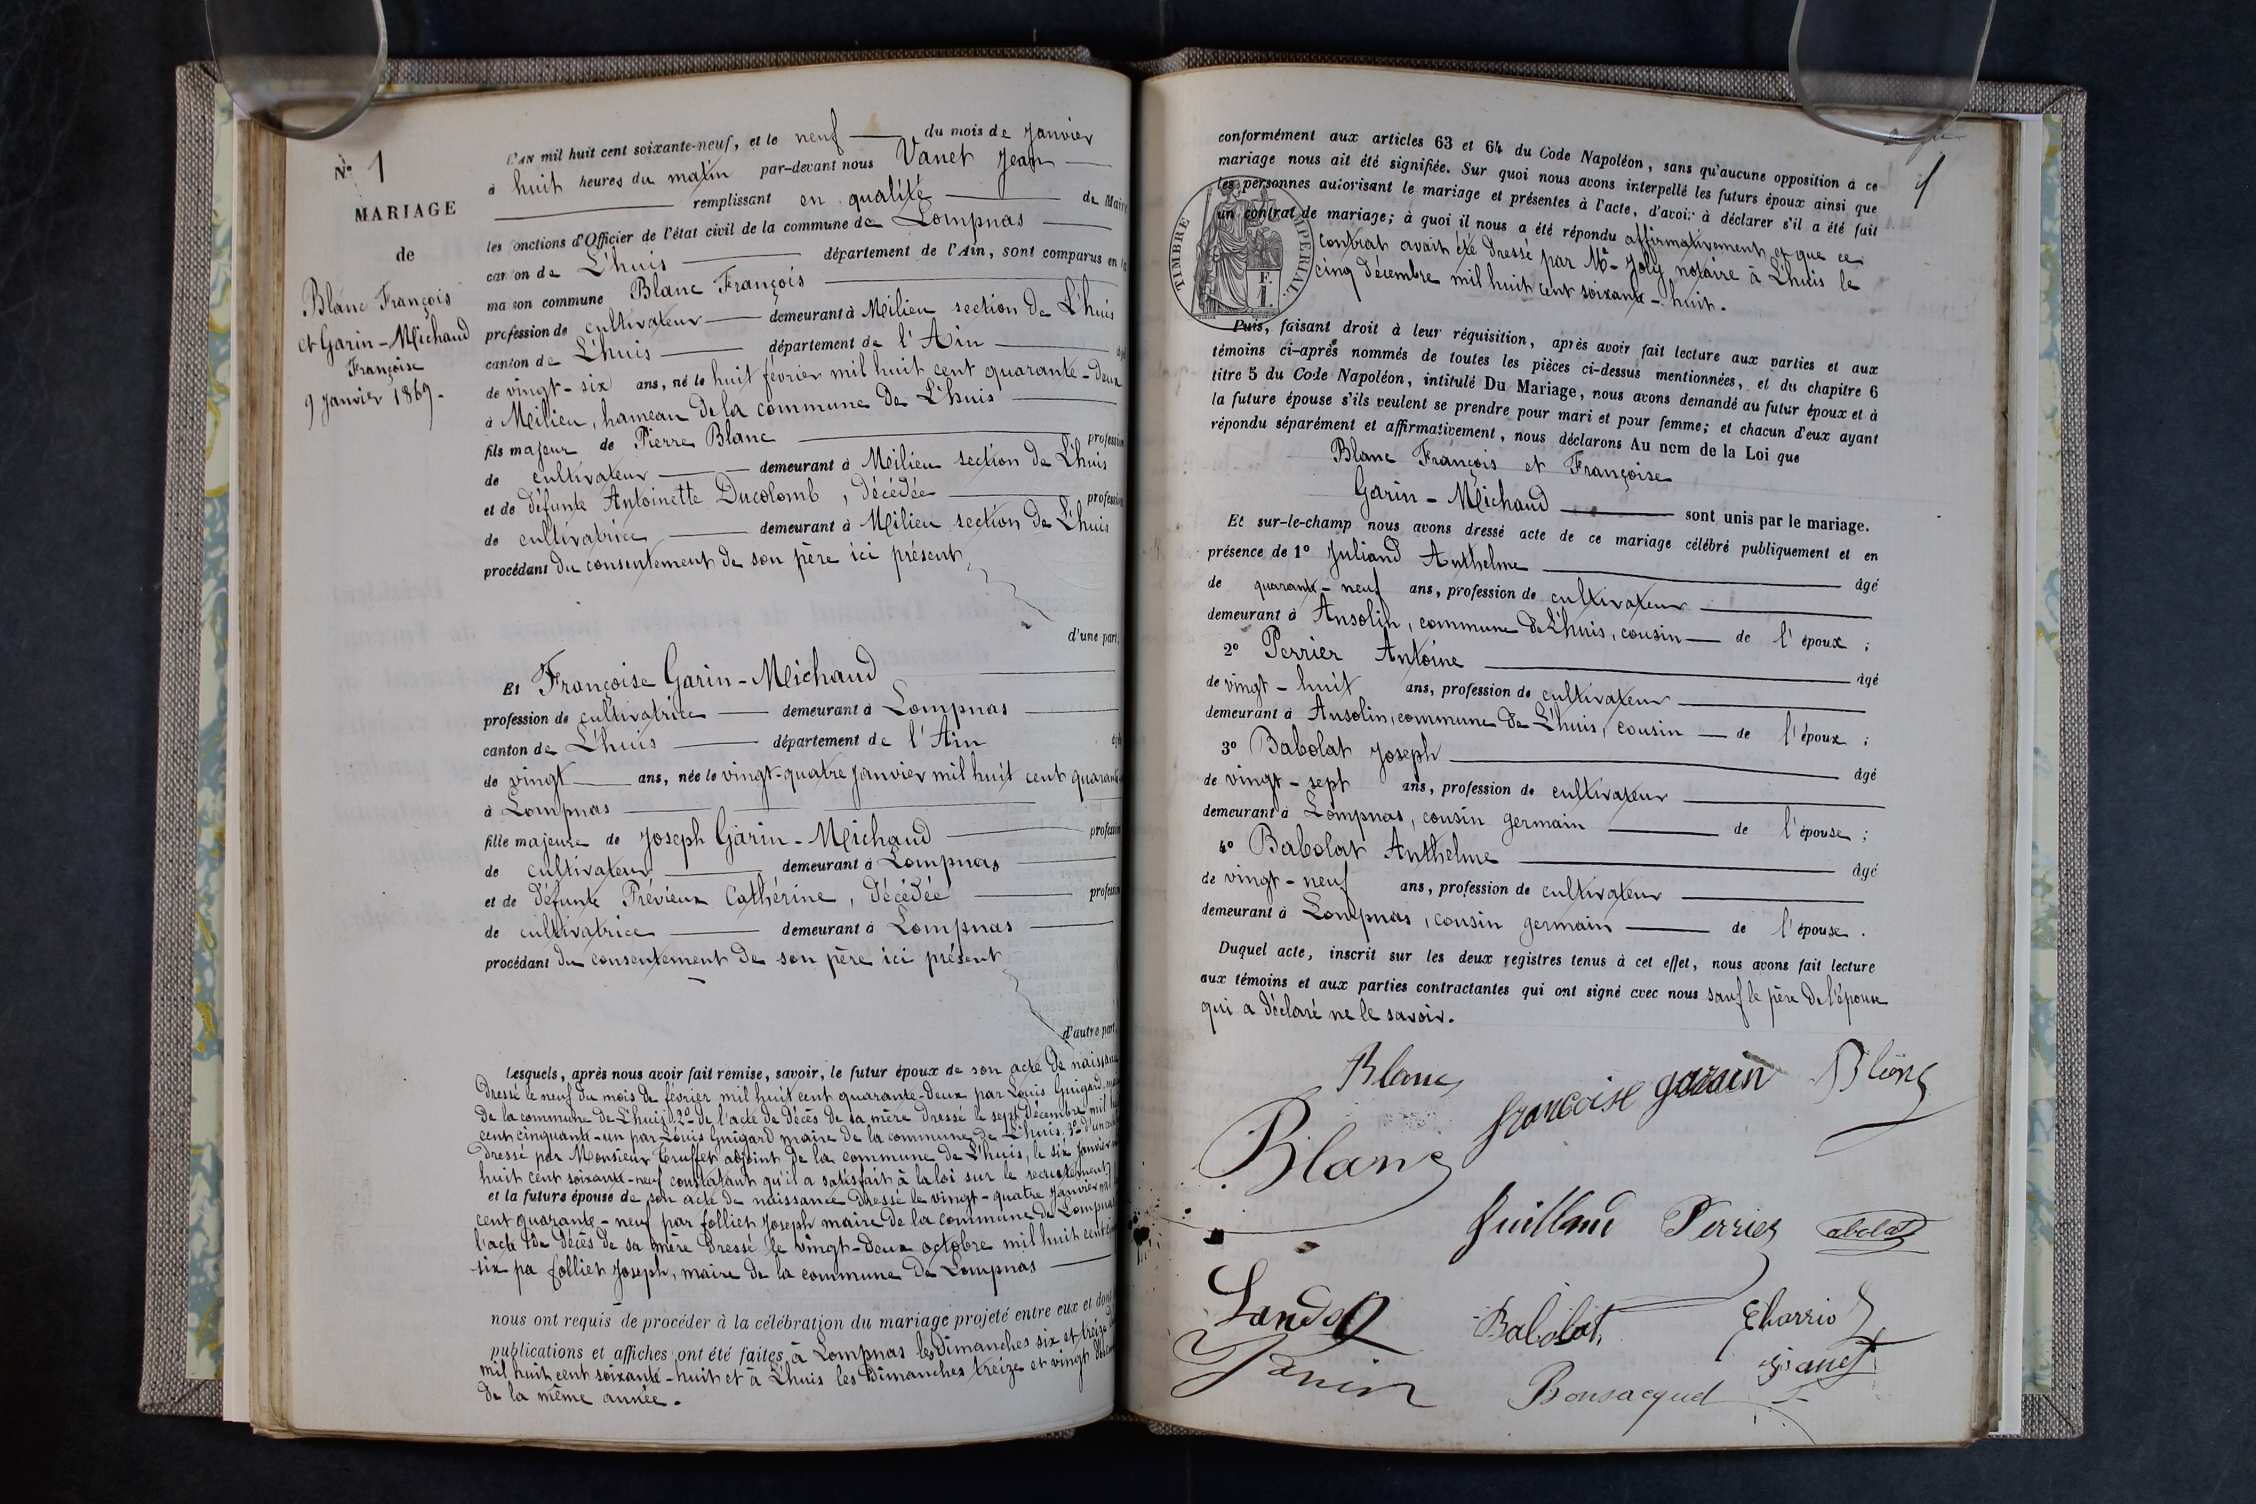 N° 1
MARIAGE
de
Blanc François
et Garin-Michaud
Françoise
9 Janvier 1869.
L'AN mil huit cent soixante-neuf, et le neuf du mois de Janvier
à huit heures du matin par-devant nous Vanet Jean
remplissant en qualité de Maire
les fonctions d'Officier de l'état civil de la commune de Lompnas
canton de L'huis département de l'Ain, sont comparus en la
maison commune Blanc François
profession de cultivateur demeurant à Milieu section de L'huis
canton de L'huis département de l'Ain âgé
de vingt-six ans, né le huit février mil huit cent quarante-deux
à Milieu, hameau de la commune de L'huis
fils majeur de Pierre Blanc profession
de cultivateur demeurant à Milieu section de L'huis
et de défunte Antoinette Ducolomb, décédée profession
de cultivatrice demeurant à Milieu section de L'huis
procédant du consentement de son père ici présent
d'une part;
Et Françoise Garin-Michaud
profession de cultivatrice demeurant à Lompnas
canton de L'huis département de l'Ain âgée
de vingt ans, née le vingt-quatre Janvier mil huit cent quarante
à Lompnas
fille majeure de Joseph Garin-Michaud profession
de cultivateur demeurant à Lompnas
et de défunte Prévieux Cathérine, décédée profession
de cultivatrice demeurant à Lompnas
procédant du consentement de son père ici présent
d'autre part,
Lesquels, après nous avoir fait remise, savoir, le futur époux de son acte de naissance
dressé le neuf du mois de février mil huit cent quarante-deux par Louis Guigard, maire
de la commune de L'huis; 2° de l'acte de décès de sa mère dressé le sept décembre mil huit
cent cinquante-un par Louis Guigard maire de la commune de L'huis, 3° d'un
dressé par Monsieur Truffet adjoint de la commune de L'huis, le six Janvier
huit cent soixante-neuf constatant qu'il a satisfait à la loi sur le recrutement
et la future épouse de son acte de naissance dressé le vingt-quatre Janvier mil
cent quarante-neuf par follict Joseph maire de la commune de Lompnas
l'acte de décès de sa mère dressé le vingt-deux octobre mil huit cent
six pa follict Joseph, maire de la commune de Lompnas
nous ont requis de procéder à la célébration du mariage projeté entre eux et dont
publications et affiches ont été faites à Lompnas les Dimanches six et treize
mil huit cent soixante-huit et à L'huis les Dimanches treize et vingt décembre
de la même année.
1
conformément aux articles 63 et 64 du Code Napoléon, sans qu'aucune opposition à ce
mariage nous ait été signifiée. Sur quoi nous avons interpellé les futurs époux ainsi que
les personnes autorisant le mariage et présentes à l'acte, d'avoir à déclarer s'il a été fait
un contrat de mariage; à quoi il nous a été répondu affirmativement et que ce
contrat avait été dressé par Me Joly notaire à L'huis le
cinq décembre mil huit cent soixante-huit.
TIMBRE IMPERIAL
Puis, faisant droit à leur réquisition, après avoir fait lecture aux parties et aux
témoins ci-après nommés de toutes les pièces ci-dessus mentionnées, et du chapitre 6
titre 5 du Code Napoléon, intitulé Du Mariage, nous avons demandé au futur époux et à
la future épouse s'ils veulent se prendre pour mari et pour femme; et chacun d'eux ayant
répondu séparément et affirmativement, nous déclarons Au nom de la Loi que
Blanc François et Françoise
Garin-Michaud sont unis par le mariage.
Et sur-le-champ nous avons dressé acte de ce mariage célébré publiquement et en
présence de 1° Juliand Anthelme âgé
de quarante-neuf ans, profession de cultivateur
demeurant à Ansolin, commune de L'huis, cousin de l'époux;
2° Perrier Antoine âgé
de vingt-huit ans, profession de cultivateur
demeurant à Ansolin, commune de L'huis, cousin de l'époux;
3° Babolat Joseph âgé
de vingt-sept ans, profession de cultivateur
demeurant à Lompnas, cousin germain de l'épouse;
4° Babolat Anthelme âgé
de vingt-neuf ans, profession de cultivateur
demeurant à Lompnas, cousin germain de l'épouse.
Duquel acte, inscrit sur les deux registres tenus à cet effet, nous avons fait lecture
aux témoins et aux parties contractantes qui ont signé avec nous sauf le père de l'épouse
qui a déclaré ne le savoir.
Blanc francoise garain
Blanc
Juilland Perrier
Babolat
Janin